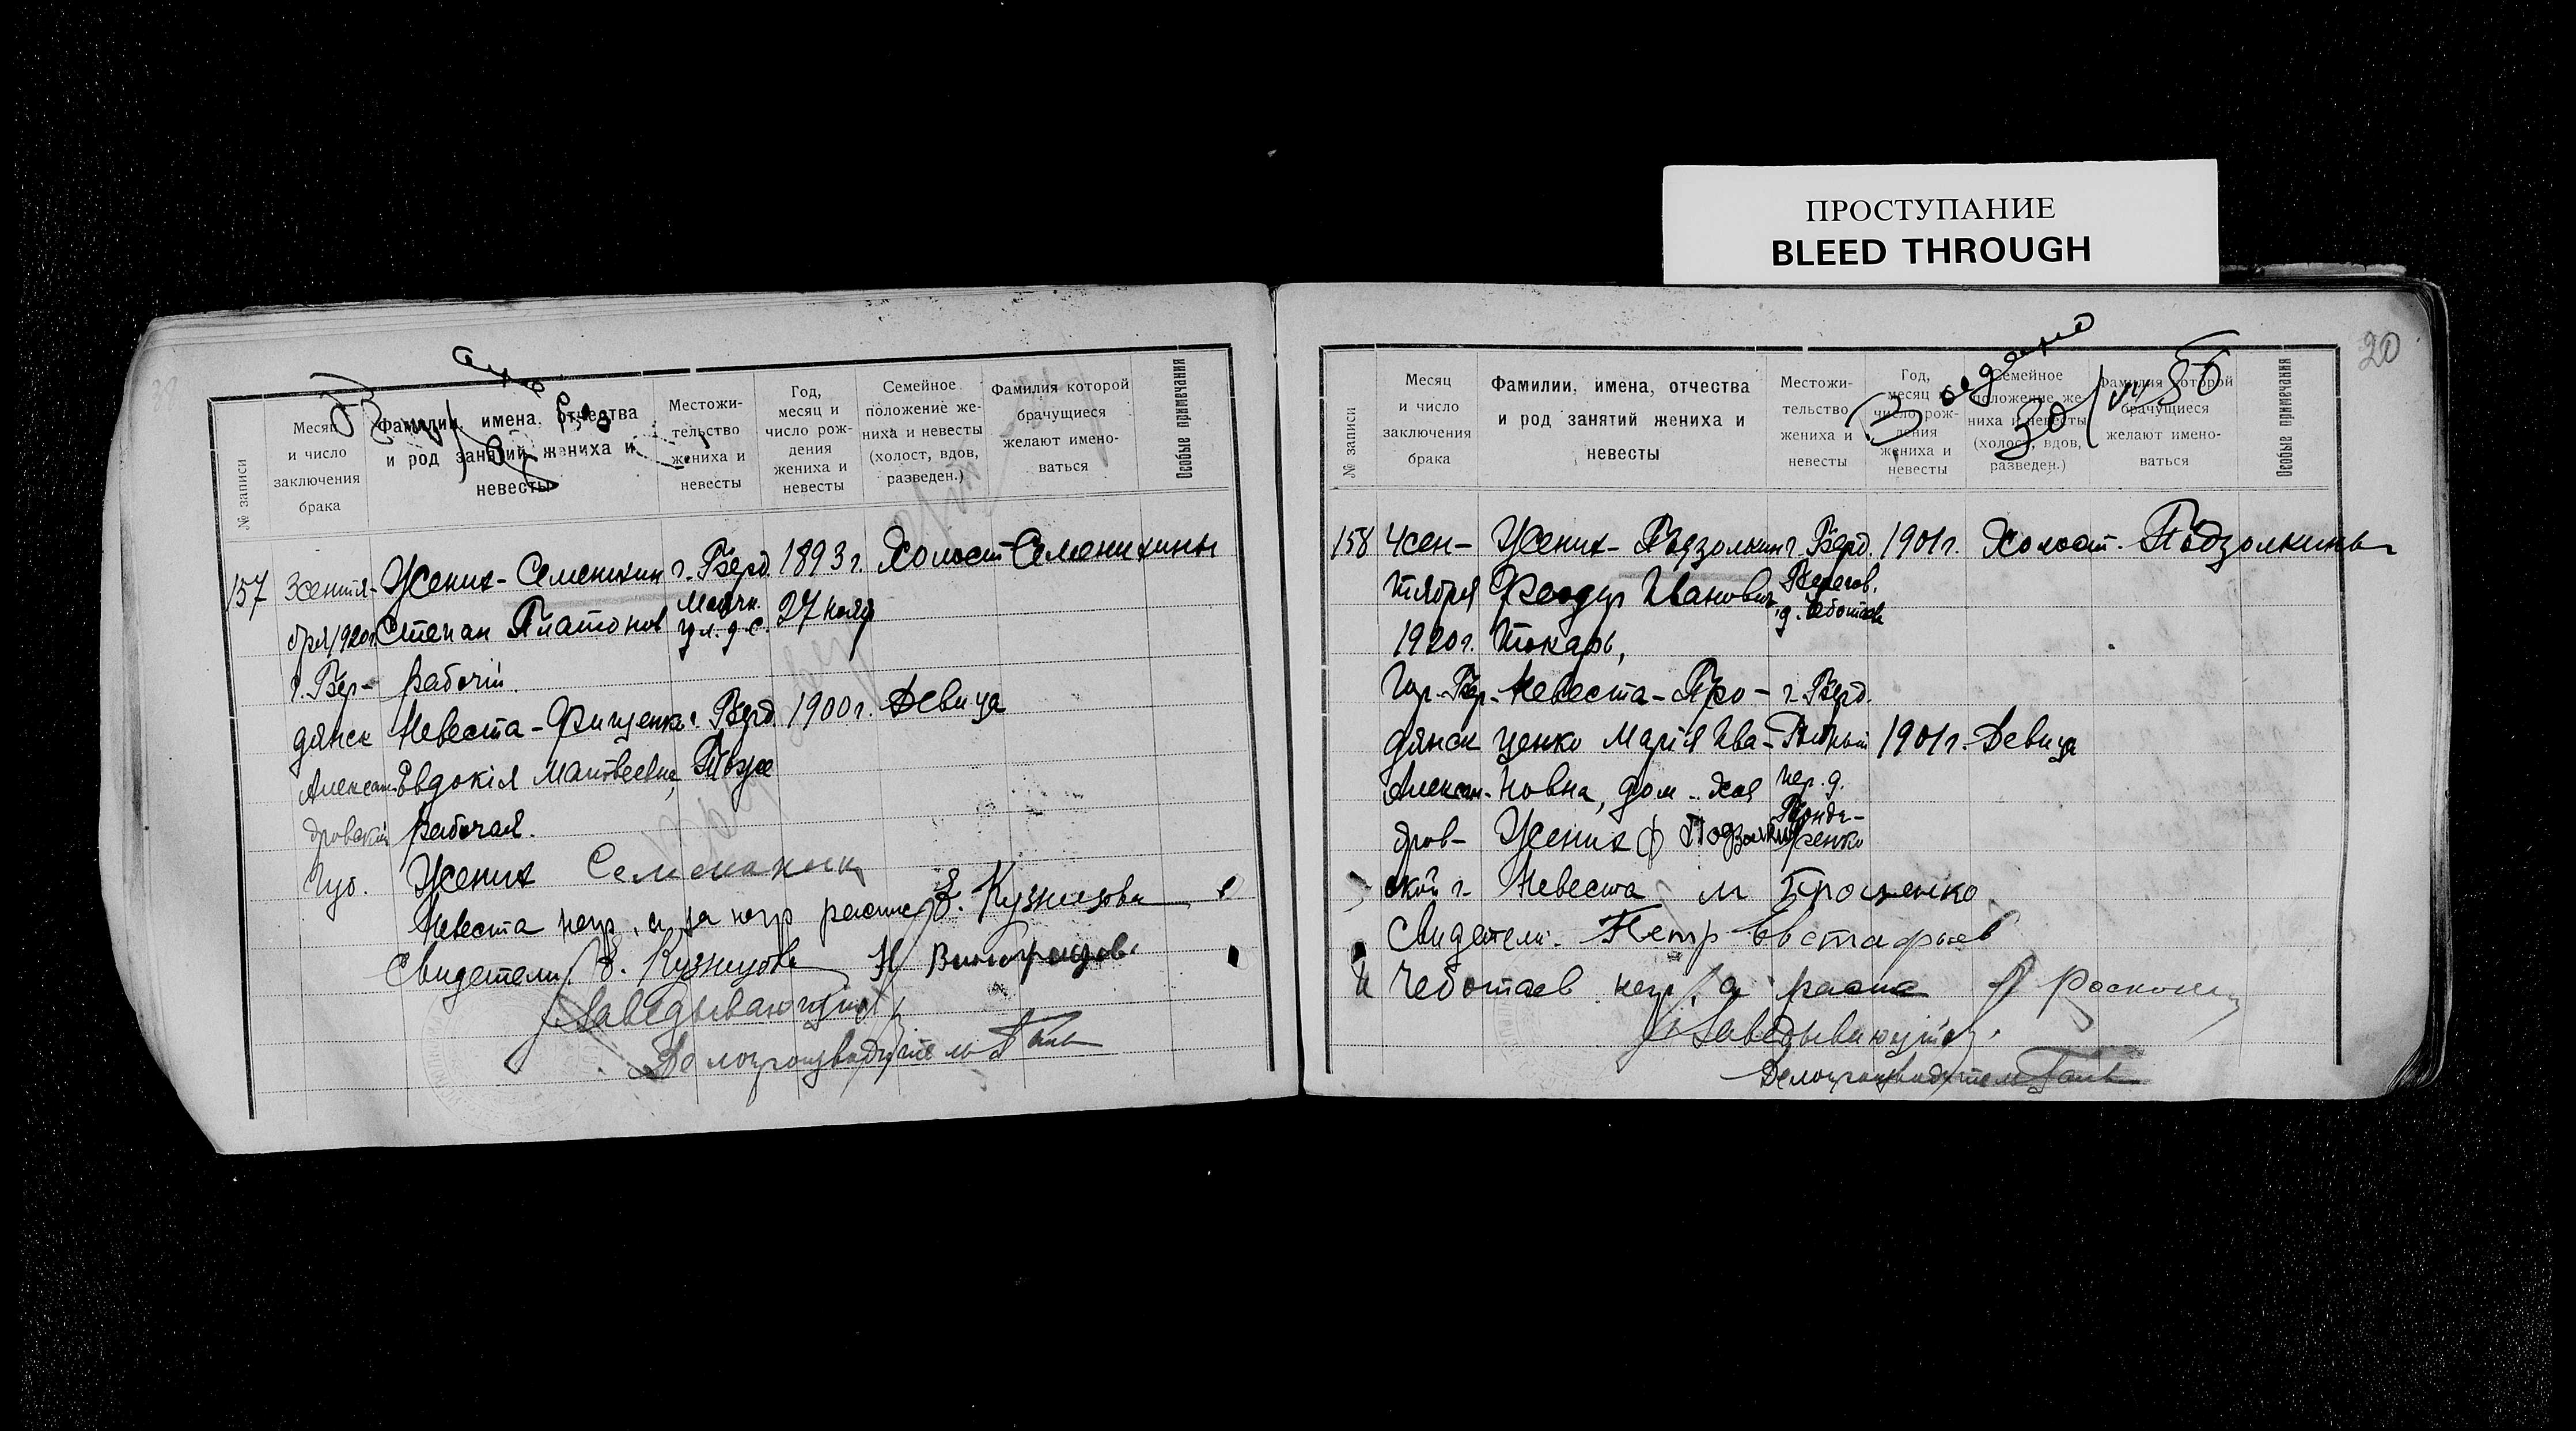 ПРОСТУПАНИЕ
BLEED THROUGH
20
№ записи
Месяц и число заключения брака
Фамилии, имена, отчества и род занятий жениха и невесты
Местожительство жениха и невесты
Год, месяц и число рождения жениха и невесты
Семейное положение жениха и невесты (холост, вдов, разведен.)
Фамилия которой брачущиеся желают именоваться
Особые примечания
157 3 сентя- Жених - Семенихин г. Берд. 1893 г. Холост Семенихины
бря 1920 г. Степан Платонов 27 ноя
г. Бер- рабочий.
дянск Невеста - Фищенко г. Берд. 1900 г. Девица
Алексан Евдокія Матвеевна, Тоже
дровской рабочая.
Губ. Жених
Невеста негр. а за негр распис Е. Кузнецова
Свидетели Е. Кузнецова Н Виноградов
Заведывающий
Делопроизводитель
№ записи
Месяц и число заключения брака
Фамилии, имена, отчества и род занятий жениха и невесты
Местожительство жениха и невесты
Год, месяц и число рождения жениха и невесты
Семейное положение жениха и невесты (холост, вдов, разведен.)
Фамилия которой брачущиеся желают именоваться
Особые примечания
158 4 сен- Жених - Подзолкин г. Берд. 1901 г. Холост. Подзолкины
тября Феодор Иванович, Берегов. д. Чеботаев
1920 г. Токарь,
Гор. Бер- Невеста - Про- г. Берд.
дянск ценко Марія Ива- 1901 г. Девица
Алексан- новна, дом. хоз пер. д.
дров- Жених Ф Подзолкин Бонда- ренко
ской г. Невеста М Проценко
Свидетели: Петр Евстафьев
и Чеботаев негр. а распис
Заведывающий
Делопроизводитель